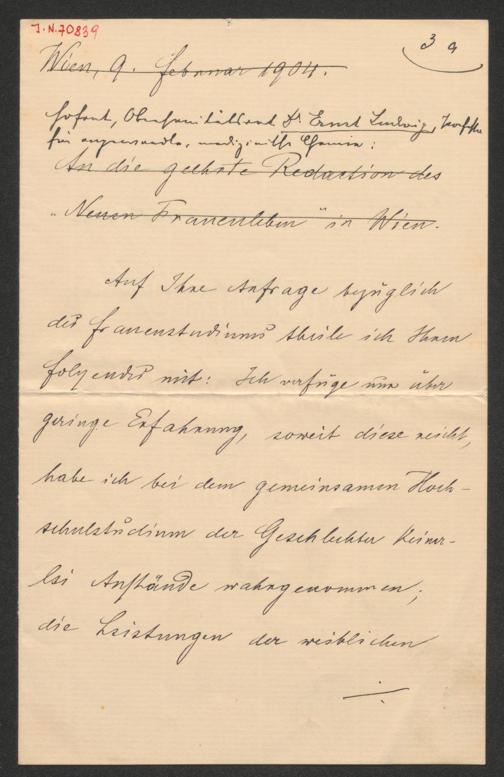 J.N. 70839
3 a
Wien, 9. Februar 1904.
Hofrat, Obersanitätsrat Dr. Ernst Ludwig, Prof.
für angewandte, medizinische Chemie:
An die geehrte Redaction des
„Neuen Frauenleben" in Wien.
Auf Ihre Anfrage bezüglich
des Frauenstudiums theile ich Ihnen
folgendes mit: Ich verfüge nur über
geringe Erfahrung, soweit diese reicht,
habe ich bei dem gemeinsamen Hoch-
schulstudium der Geschlechter keiner-
lei Anstände wahrgenommen;
die Leistungen der weiblichen
./.